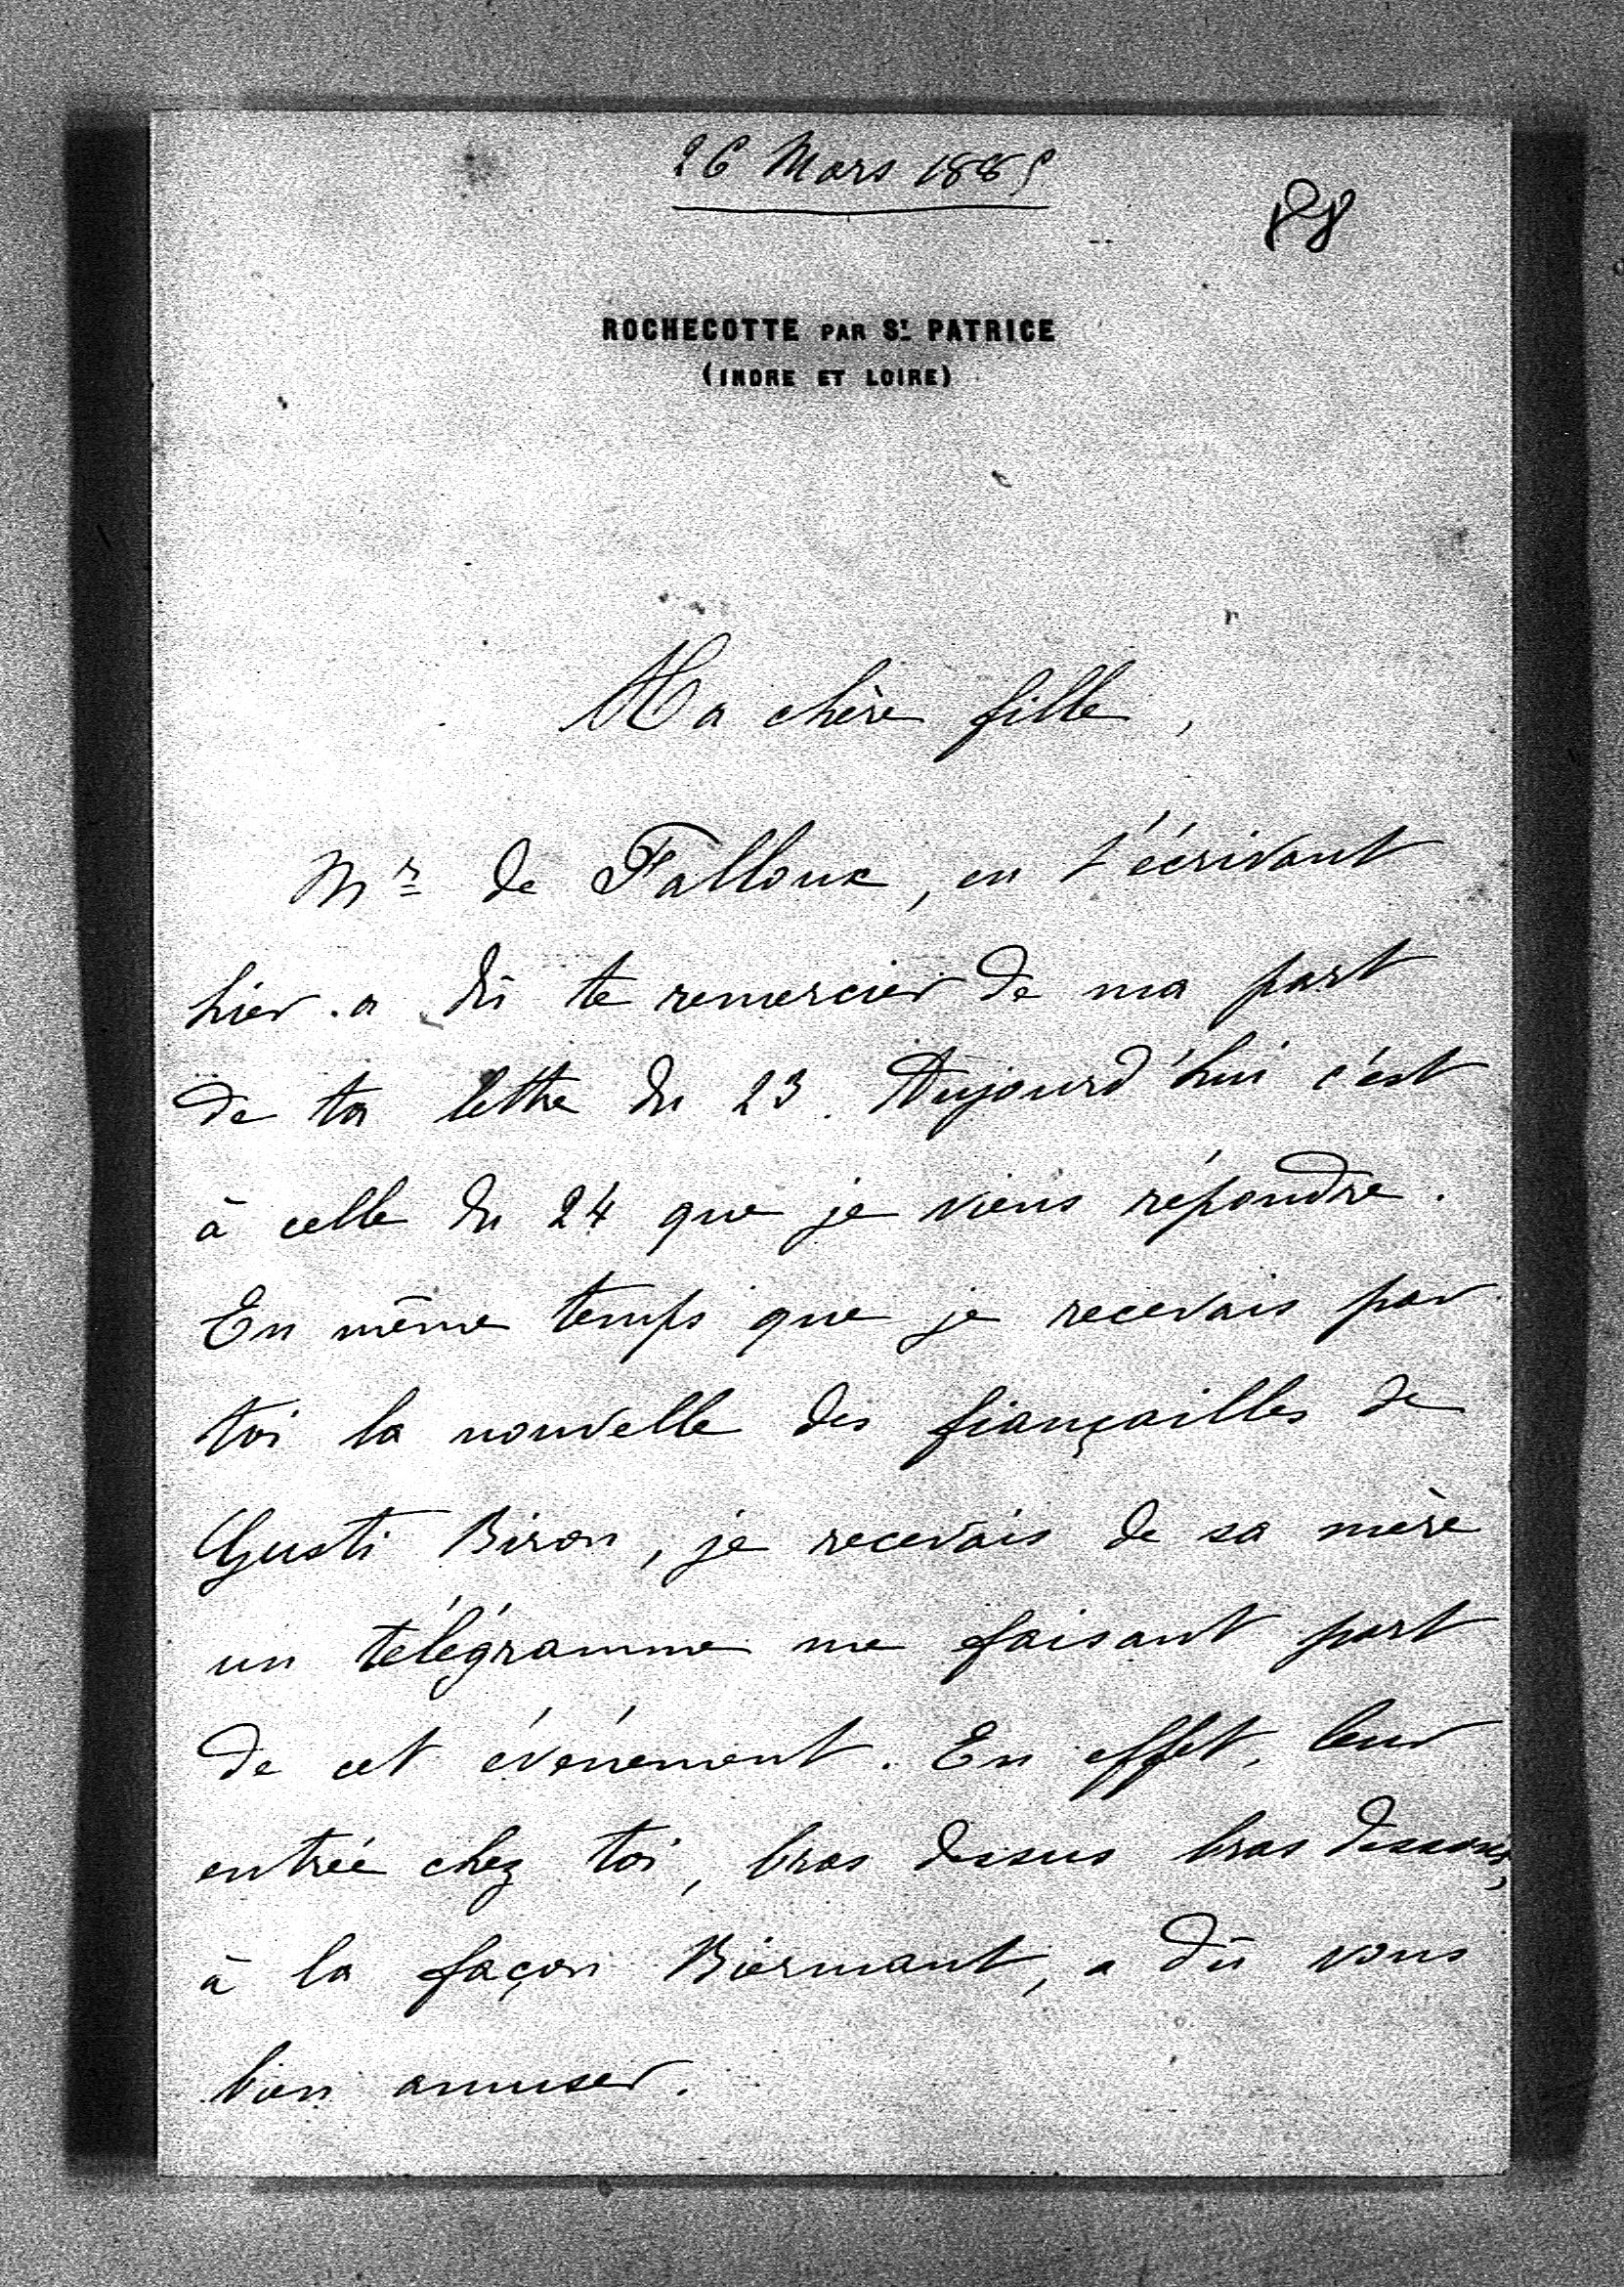 26 Mars 1885
88
ROCHECOTTE PAR St. PATRICE
(INDRE ET LOIRE)
Ma chère fille,
Mr de Falloux, en t'écrivant
hier a dû te remercier de ma part
de ta lettre du 23. Aujourd'hui c'est
à celle du 24 que je viens répondre.
En même temps que je recevais par
toi la nouvelle des fiançailles de
Gusti Biron, je recevais de sa mère
un télégramme me faisant part
de cet événement. En effet, leur
entrée chez toi, bras dessus bras dessous,
à la façon Biermant, a dû vous
bien amuser.